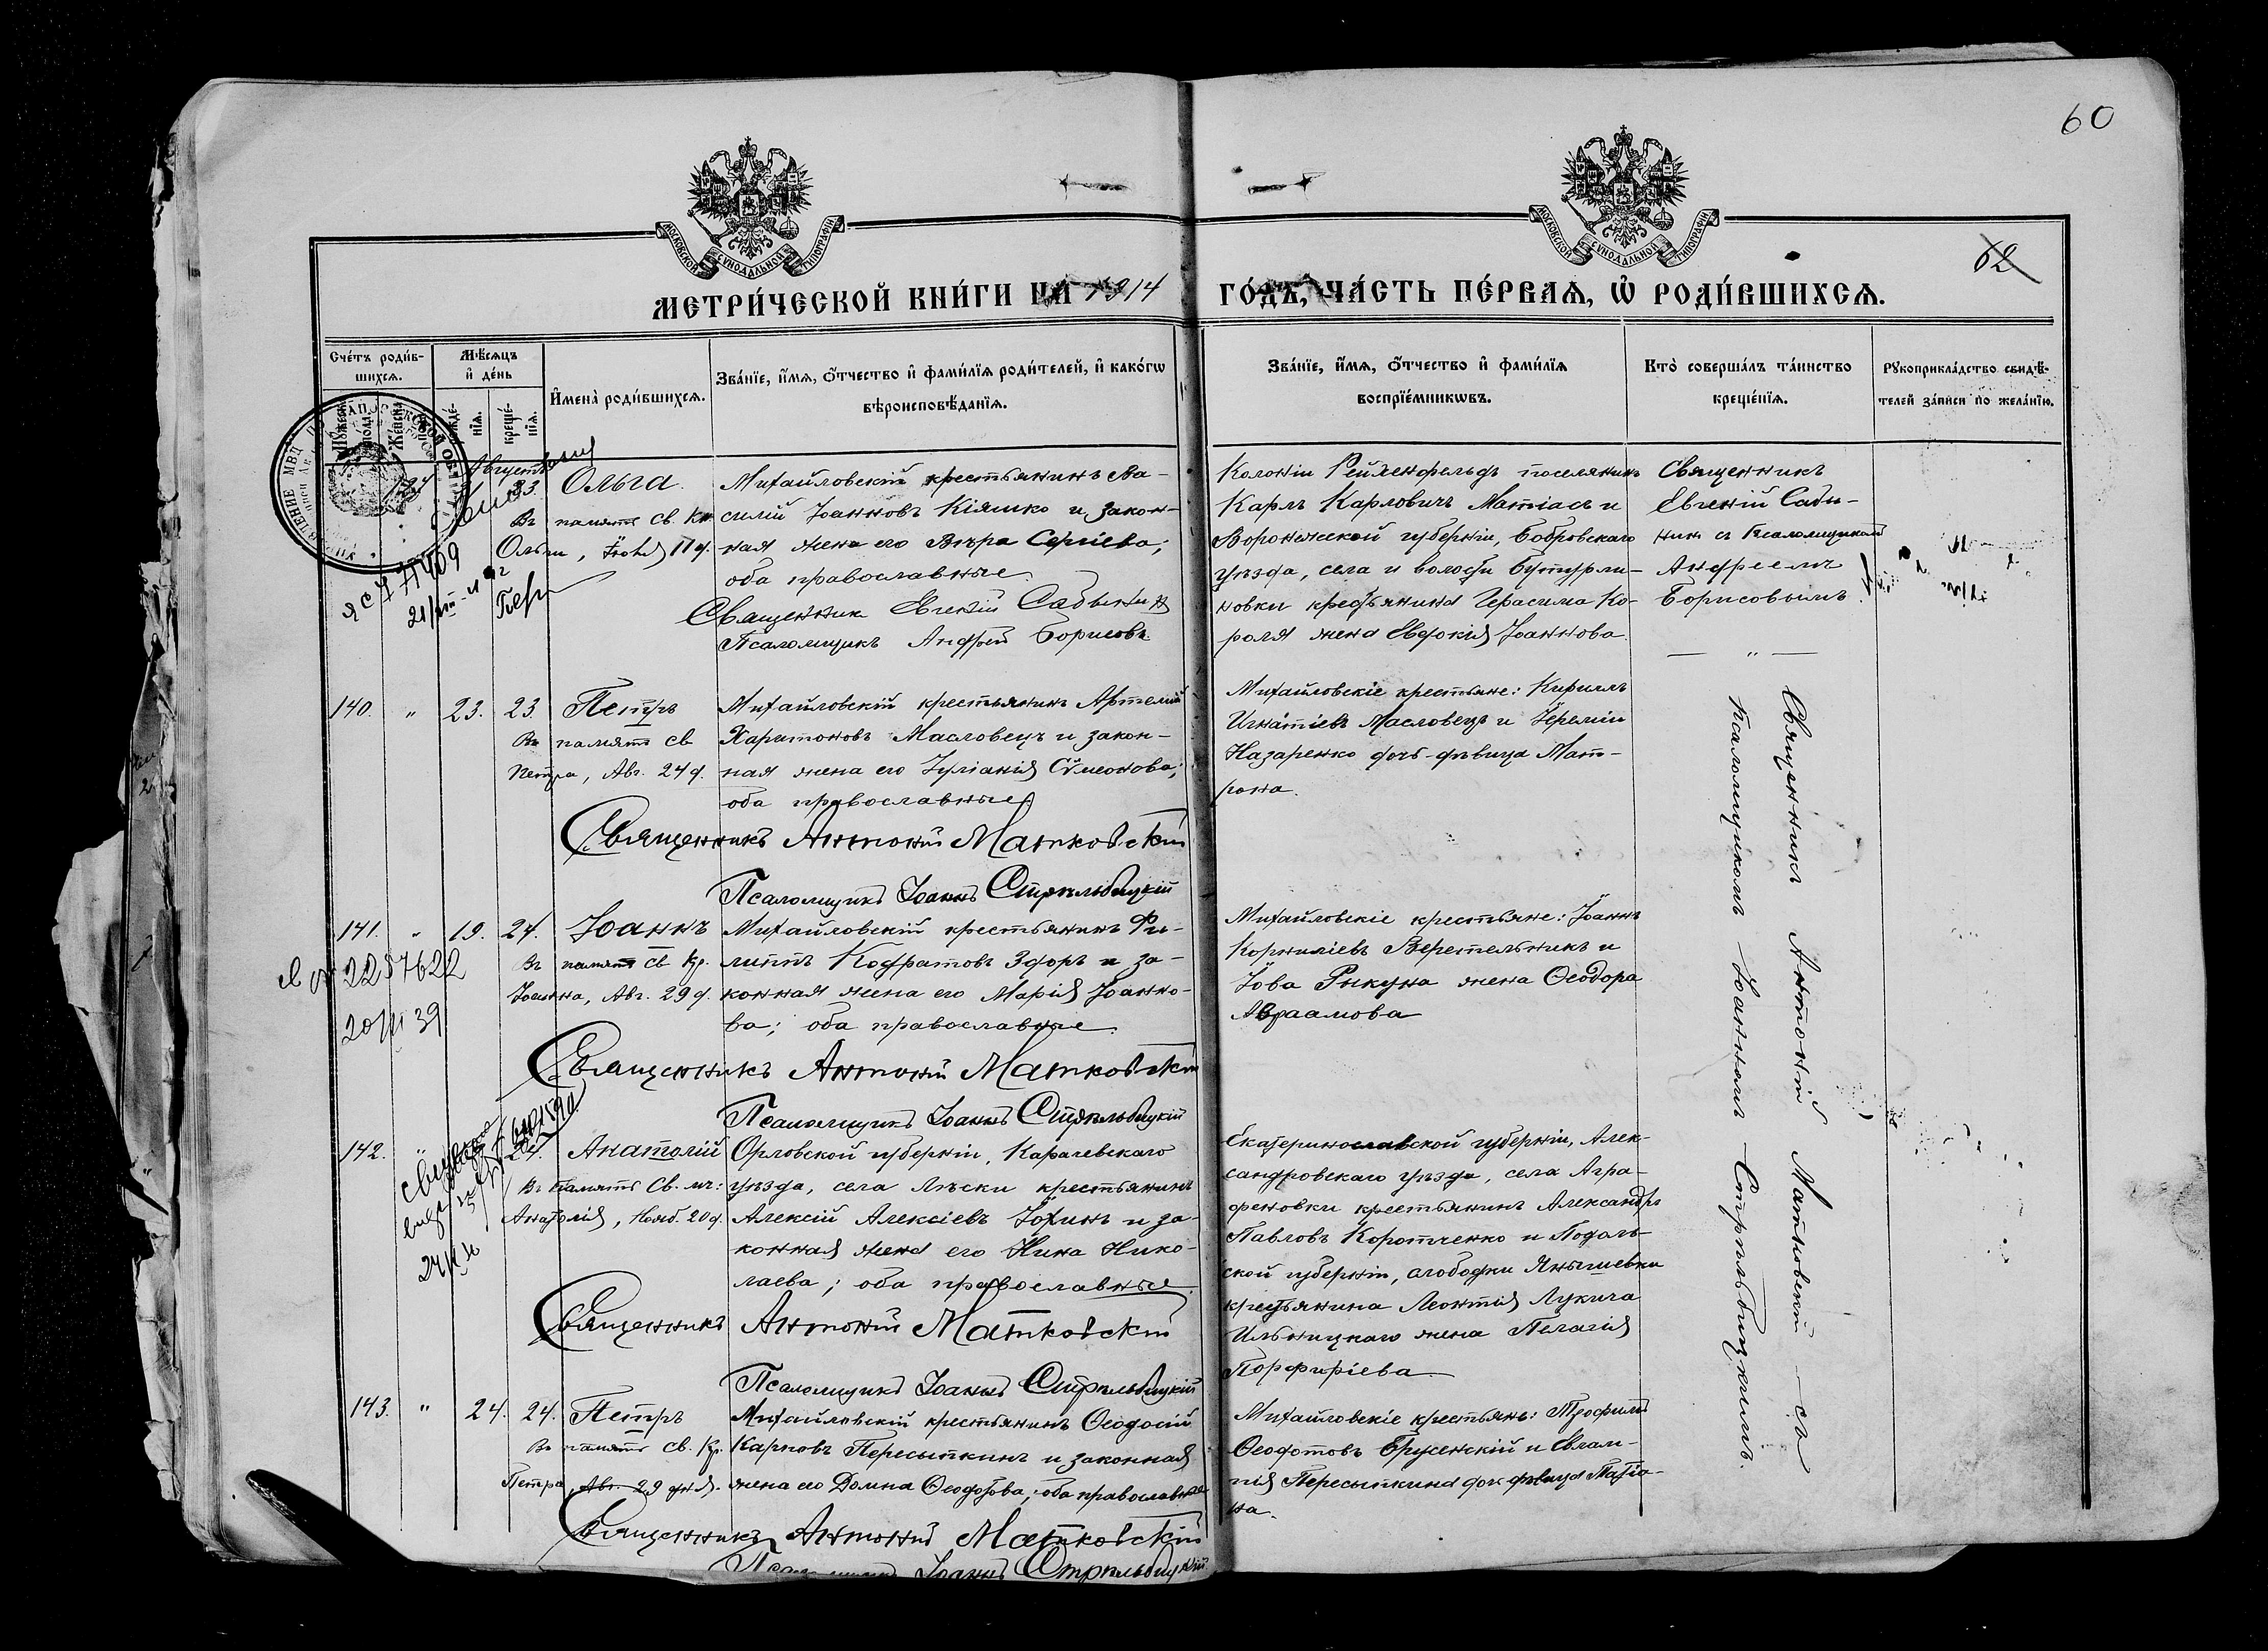 60
62
МОСКОВСКОЙ СѴНОДАЛЬНОЙ ТИПОГРАФІИ
МОСКОВСКОЙ СѴНОДАЛЬНОЙ ТИПОГРАФІИ
МЕТРИ́ЧЕСКОЙ КНИ́ГИ НА 1914 ГО́ДЪ, ЧА́СТЬ ПЕ́РВАѦ, Ѡ҆ РОДИ́ВШИХСѦ.
Сче́тъ роди́в-
шихсѧ.
Мѣ́сѧцъ
и҆ де́нь
И҆мена̀ роди́вшихсѧ.
Зва́нїе, и҆́мѧ, ѻ҆́тчество и҆ фами́лїѧ роди́телей, и҆ како́гѡ
вѣроисповѣ́данїѧ.
Зва́нїе, и҆́мѧ, ѻ҆́тчество и҆ фами́лїѧ
воспрїе́мникѡвъ.
Кто̀ соверша́лъ та́инство
креще́нїѧ.
Рꙋкоприкла́дство свидѣ́-
телей за́писи по жела́нїю.
Августъ
23. Ольга.
Въ память св. Кн.
Ольги, Іюля 11 д.
Михайловскій крестьянинъ Ва-
силій Іоанновъ Кіяшко и закон-
ная жена его Вѣра Сергіева;
оба православные.
Священник Евгеній Сабынин
Псаломщикъ Андрей Борисовъ
Колоніи Рейхенфельдъ поселянинъ
Карлъ Карловичъ Матіасъ и
Воронежской губерніи, Бобровскаго
уѣзда, села и волости Бутурли-
новки крестьянина Герасима Ко-
роля жена Евдокія Іоаннова.
Священникъ
Евгеній Сабы-
нин съ Псаломщикомъ
Андреемъ
Борисовымъ
21/VIII
140. " 23. 23. Петръ
Въ память св.
Петра, Авг. 24 д.
Михайловскій крестьянинъ Артемій
Харитоновъ Масловецъ и закон-
ная жена его Іуліанія Сѵмеонова;
оба православные.
Священникъ Антоній Матковскій
Псаломщикъ Іоаннъ Стрѣльбицкій
Михайловскіе крестьяне: Кириллъ
Игнатіевъ Масловецъ и Іереміи
Назаренко дочь-дѣвица Мат-
рона.
141. " 19. 24. Іоаннъ
Въ память св. Кр.
Іоанна, Авг. 29 д.
2257622
20/VI 39
Михайловскій крестьянинъ Фи-
липпъ Кодратовъ Здоръ и за-
конная жена его Марія Іоанно-
ва; оба православные.
Священникъ Антоній Матковскій
Псаломщикъ Іоаннъ Стрѣльбицкій
Михайловскіе крестьяне: Іоаннъ
Корниліевъ Веретельникъ и
Іова Рыкуна жена Ѳеодора
Авраамова
142. " 24. Анатолій
Въ память Св. мч:
Анатолія, Нояб. 20 д.
Орловской губерніи, Карачевскаго
уѣзда, села Лѣски крестьянинъ
Алексій Алексіевъ Іохинъ и за-
конная жена его Нина Нико-
лаева; оба православные.
Священникъ Антоній Матковскій
Псаломщикъ Іоаннъ Стрѣльбицкій
Екатеринославской губерніи, Алек-
сандровскаго уѣзда, села Агра-
феновки крестьянинъ Александръ
Павловъ Коротченко и Подоль-
ской губерніи, слободки Янышевки
крестьянина Леонтія Лукича
Ильницкаго жена Пелагія
Порфиріева.
143. " 24. 24. Петръ
Въ память св. Кр.
Петра, Авг. 29 дня.
Михайловскій крестьянинъ Ѳеодосій
Карповъ Пересыпкинъ и законная
жена его Домна Ѳеодотова; оба православные
Священникъ Антоній Матковскій
Псаломщикъ Іоаннъ Стрѣльбицкій
Михайловскіе крестьяне: Трофимъ
Ѳеодотовъ Бруженскій и Евлам-
пія Пересыпкина дочь дѣвица Татіа-
на.
Священникъ Антоній Матковскій – съ
псаломщикомъ Іоанномъ Стрѣльбицкимъ.